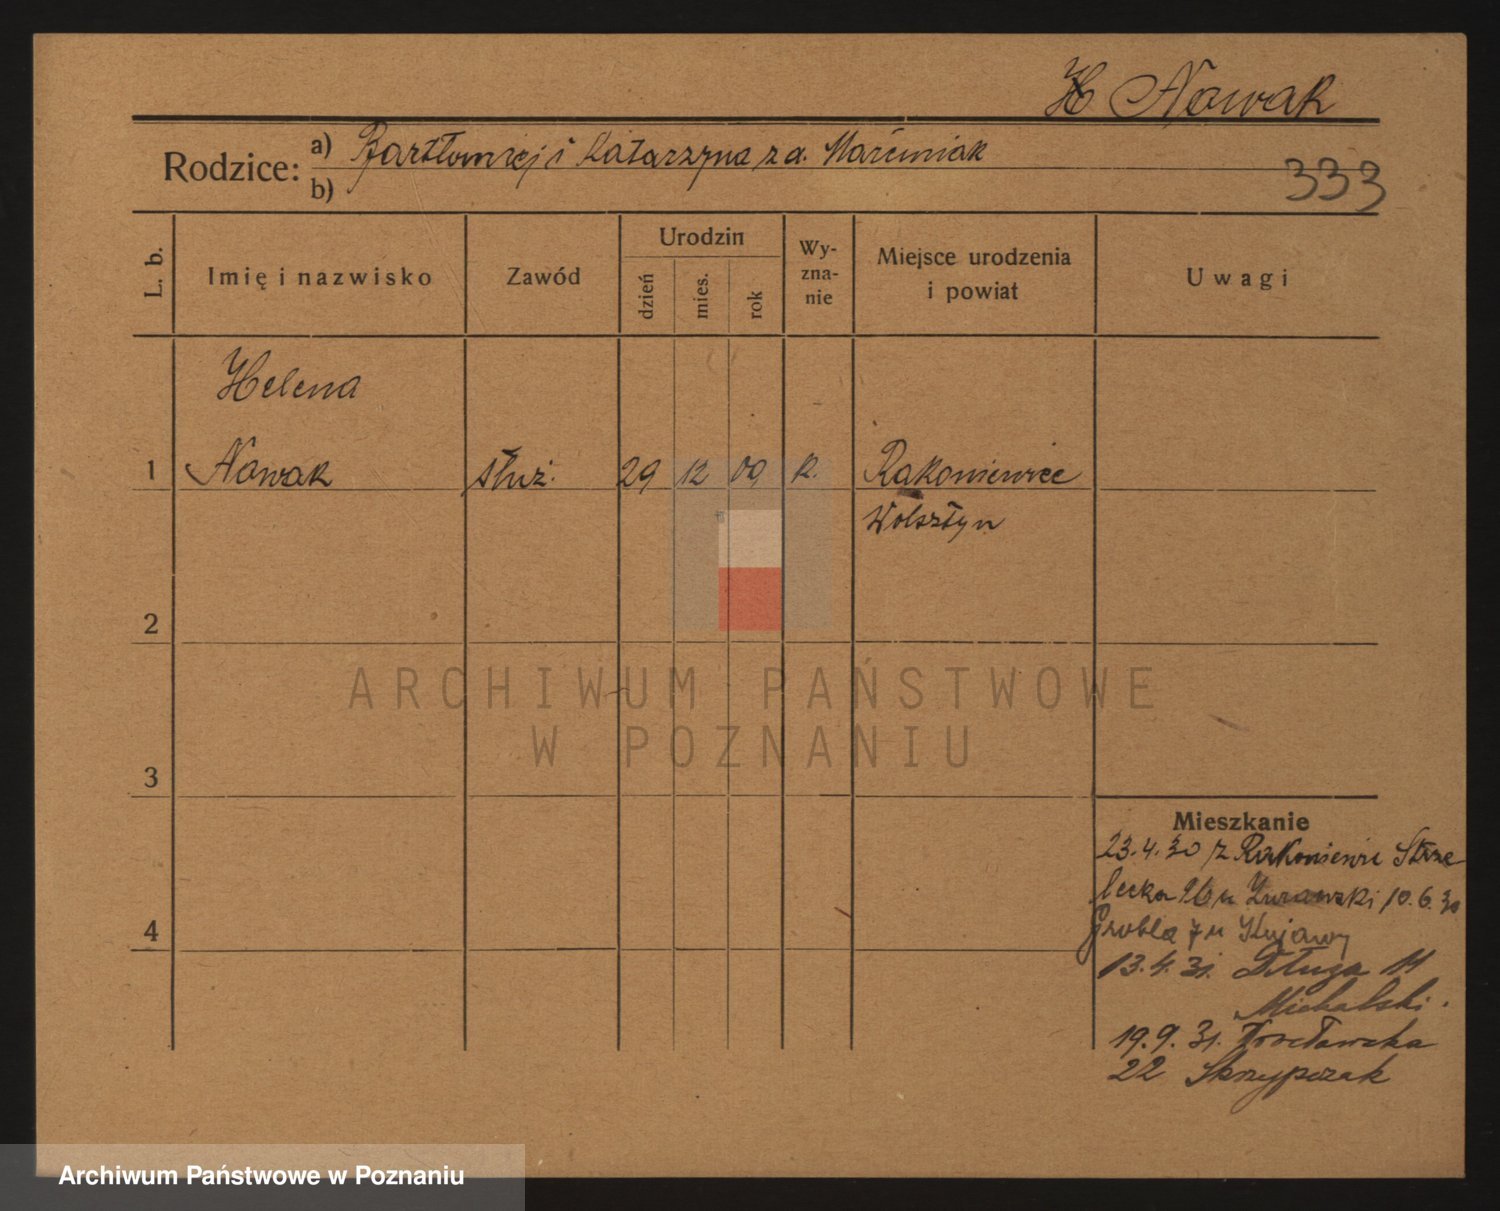 H Nowak
Rodzice: a) Bartłomiej i Katarzyna z d. Marciniak
b)
333
L. b.
Imię i nazwisko
Zawód
Urodzin
dzień
mies.
rok
Wy-
zna-
nie
Miejsce urodzenia
i powiat
Uwagi
Helena
1 Nowak służ. 29 12 09 k. Rakoniewice
Wolsztyn
2
3
4
ARCHIWUM PAŃSTWOWE
W POZNANIU
Mieszkanie
23.4.30 z Rakoniewic Strze
lecka u Żurawski 10.6.30
Grobla 7 u Kujawy
13.4.31. Długa 14
Michalski.
19.9.31. Wrocławska
22 Skrzypczak
Archiwum Państwowe w Poznaniu